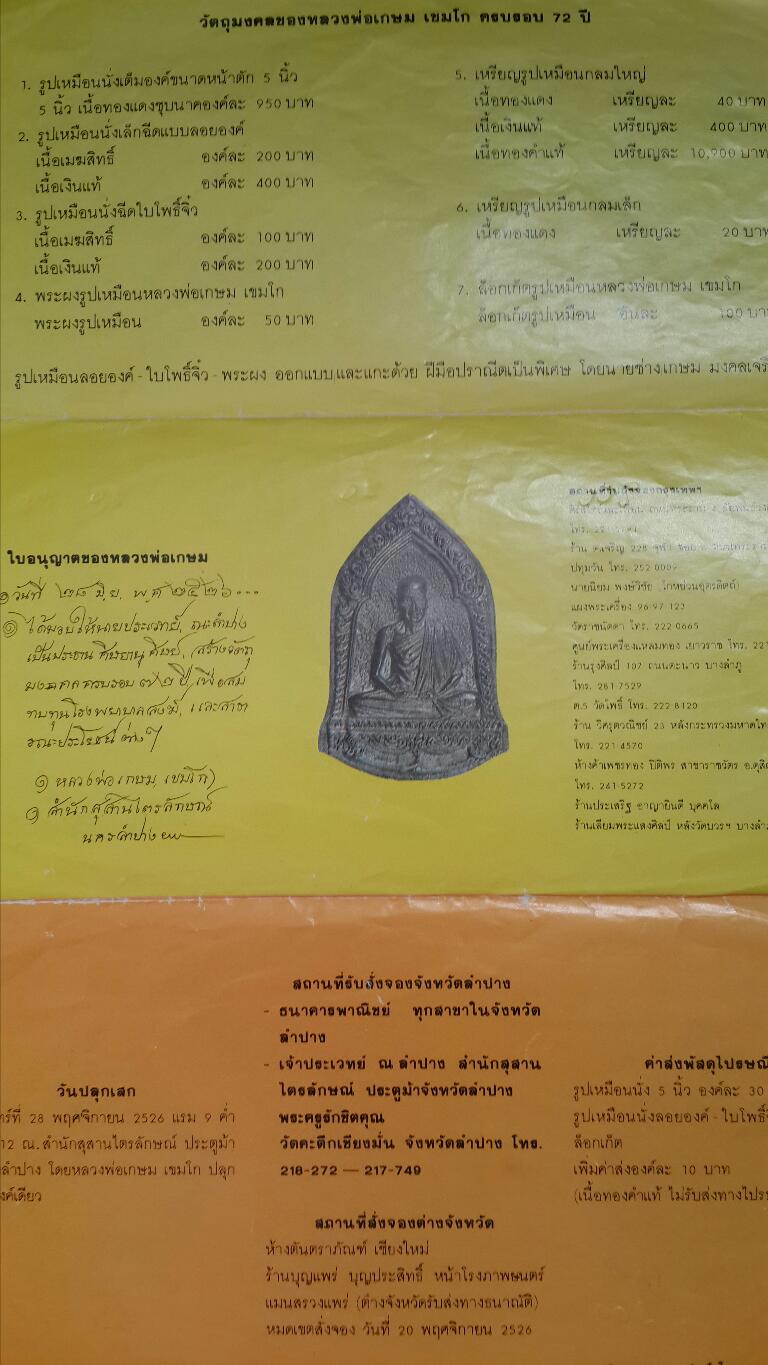 วัตถุมงคลของหลวงพ่อเกษม เขมโก ครบรอบ 72 ปี
1. รูปเหมือนนั่งเต็มองค์ขนาดหน้าตัก 5 นิ้ว
5 นิ้ว เนื้อทองแดงชุบนาคองค์ละ 950 บาท
2. รูปเหมือนนั่งเล็กฉีดแบบลอยองค์
เนื้อเมฆสิทธิ์ องค์ละ 200 บาท
เนื้อเงินแท้ องค์ละ 400 บาท
3. รูปเหมือนนั่งฉีดใบโพธิ์จิ๋ว
เนื้อเมฆสิทธิ์ องค์ละ 100 บาท
เนื้อเงินแท้ องค์ละ 200 บาท
4. พระผงรูปเหมือนหลวงพ่อเกษม เขมโก
พระผงรูปเหมือน องค์ละ 50 บาท
5. เหรียญรูปเหมือนกลมใหญ่
เนื้อทองแดง เหรียญละ 40 บาท
เนื้อเงินแท้ เหรียญละ 400 บาท
เนื้อทองคำแท้ เหรียญละ 10,900 บาท
6. เหรียญรูปเหมือนกลมเล็ก
เนื้อทองแดง เหรียญละ 20 บาท
7. ล็อกเก็ตรูปเหมือนหลวงพ่อเกษม เขมโก
ล็อกเก็ตรูปเหมือน อันละ 100 บาท
รูปเหมือนลอยองค์ - ใบโพธิ์จิ๋ว - พระผง ออกแบบและแกะด้วย ฝีมือปราณีตเป็นพิเศษ โดยนายช่างเกษม มงคลเจริ
ใบอนุญาตของหลวงพ่อเกษม
วันที่ ๒๘ มิ.ย. พ.ศ ๒๕๒๖
ได้มอบให้นายประเวทย์, ณะลำปาง
เป็นประธาน ศิษยานุศิษย์, สร้างวัตถุ
มงคลครบรอบ ๗๒ ปี, เพื่อสม
ทบทุนโรงพยาบาลสงฆ์, และสาธา
รณะประโยชน์ต่างๆ
หลวงพ่อเกษม, เขมโก)
สำนักสุสานไตรลักษณ์
นครลำปาง
สถานที่รับสั่งจองกรุงเทพฯ
ปทุมวัน โทร. 252
นายนิยม พงษ์วิชัย (โกหย่วนอุตรดิตถ์)
แผงพระเครื่อง 96-97 123
วัดราชนัดดา โทร. 222 0665
ศูนย์พระเครื่องแหลมทอง เยาวราช โทร. 22
ร้านรุ่งศิลป์ 107 ถนนตะนาว บางลำภู
โทร. 281 7529
ต.5 วัดโพธิ์ โทร. 222 8120
ร้าน วิศรุตวณิชย์ 23 หลังกระทรวงมหาดไท
โทร. 221 4570
ห้างค้าเพชรทอง ปิติพร สาขาราชวัตร อ.ดุสิต
โทร. 241-5272
ร้านประเสริฐ อาญายินดี บุคคโล
ร้านเลี่ยมพระแสงศิลป์ หลังวัดบวรฯ บางลำภู
สถานที่รับสั่งจองจังหวัดลำปาง
- ธนาคารพาณิชย์ ทุกสาขาในจังหวัด
ลำปาง
- เจ้าประเวทย์ ณ ลำปาง สำนักสุสาน
ไตรลักษณ์ ประตูม้าจังหวัดลำปาง
พระครูรักขิตคุณ
วัดคะตึกเชียงมั่น จังหวัดลำปาง โทร.
218-272 — 217-749
วันปลุกเสก
าร์ที่ 28 พฤศจิกายน 2526 แรม 9 ค่ำ
12 ณ.สำนักสุสานไตรลักษณ์ ประตูม้า
ลำปาง โดยหลวงพ่อเกษม เขมโก ปลุก
งค์เดียว
ค่าส่งพัสดุไปรษณี
รูปเหมือนนั่ง 5 นิ้ว องค์ละ 30
รูปเหมือนนั่งลอยองค์ - ใบโพธิ์
ล็อกเก็ต
เพิ่มค่าส่งองค์ละ 10 บาท
(เนื้อทองคำแท้ ไม่รับส่งทางไปร
สถานที่สั่งจองต่างจังหวัด
ห้างตันตราภัณฑ์ เชียงใหม่
ร้านบุญแพร่ บุญประสิทธิ์ หน้าโรงภาพยนตร์
แมนสรวงแพร่ (ต่างจังหวัดรับส่งทางธนาณัติ)
หมดเขตสั่งจอง วันที่ 20 พฤศจิกายน 2526